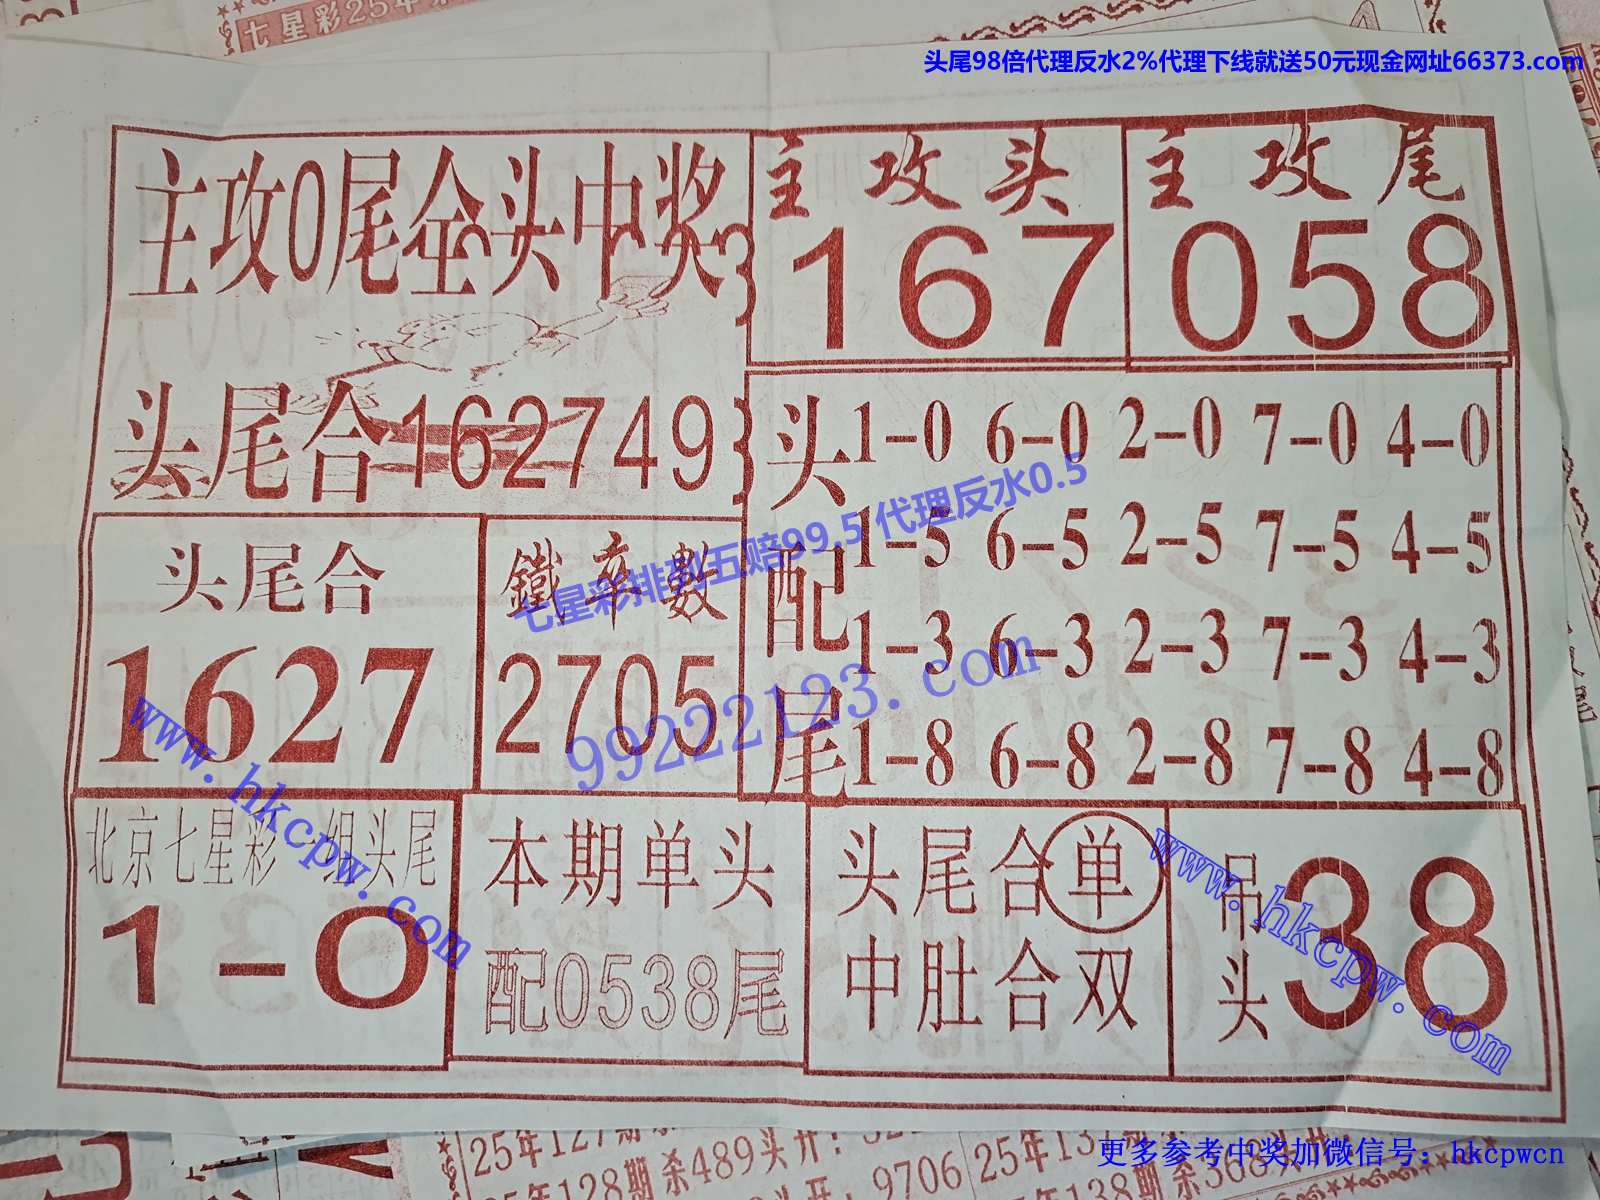 七星彩25年
头尾98倍代理反水2%代理下线就送50元现金网址66373.com
主攻0尾全头中奖
主攻头
167
主攻尾
058
头尾合162749
头配尾
1-0 6-0 2-0 7-0 4-0
1-5 6-5 2-5 7-5 4-5
1-3 6-3 2-3 7-3 4-3
1-8 6-8 2-8 7-8 4-8
头尾合
1627
鐵率數
2705
七星彩排列五赔99.5 代理反水0.5
99222123.com
www.hkcpw.com
北京七星彩一组头尾
1-0
本期单头
配0538尾
头尾合单
中肚合双
吊头
38
www.hkcpw.com
25年127期杀489头开:
25年128期杀
9706
25年137期杀
138期杀368头开
更多参考中奖加微信号：hkcpwcn